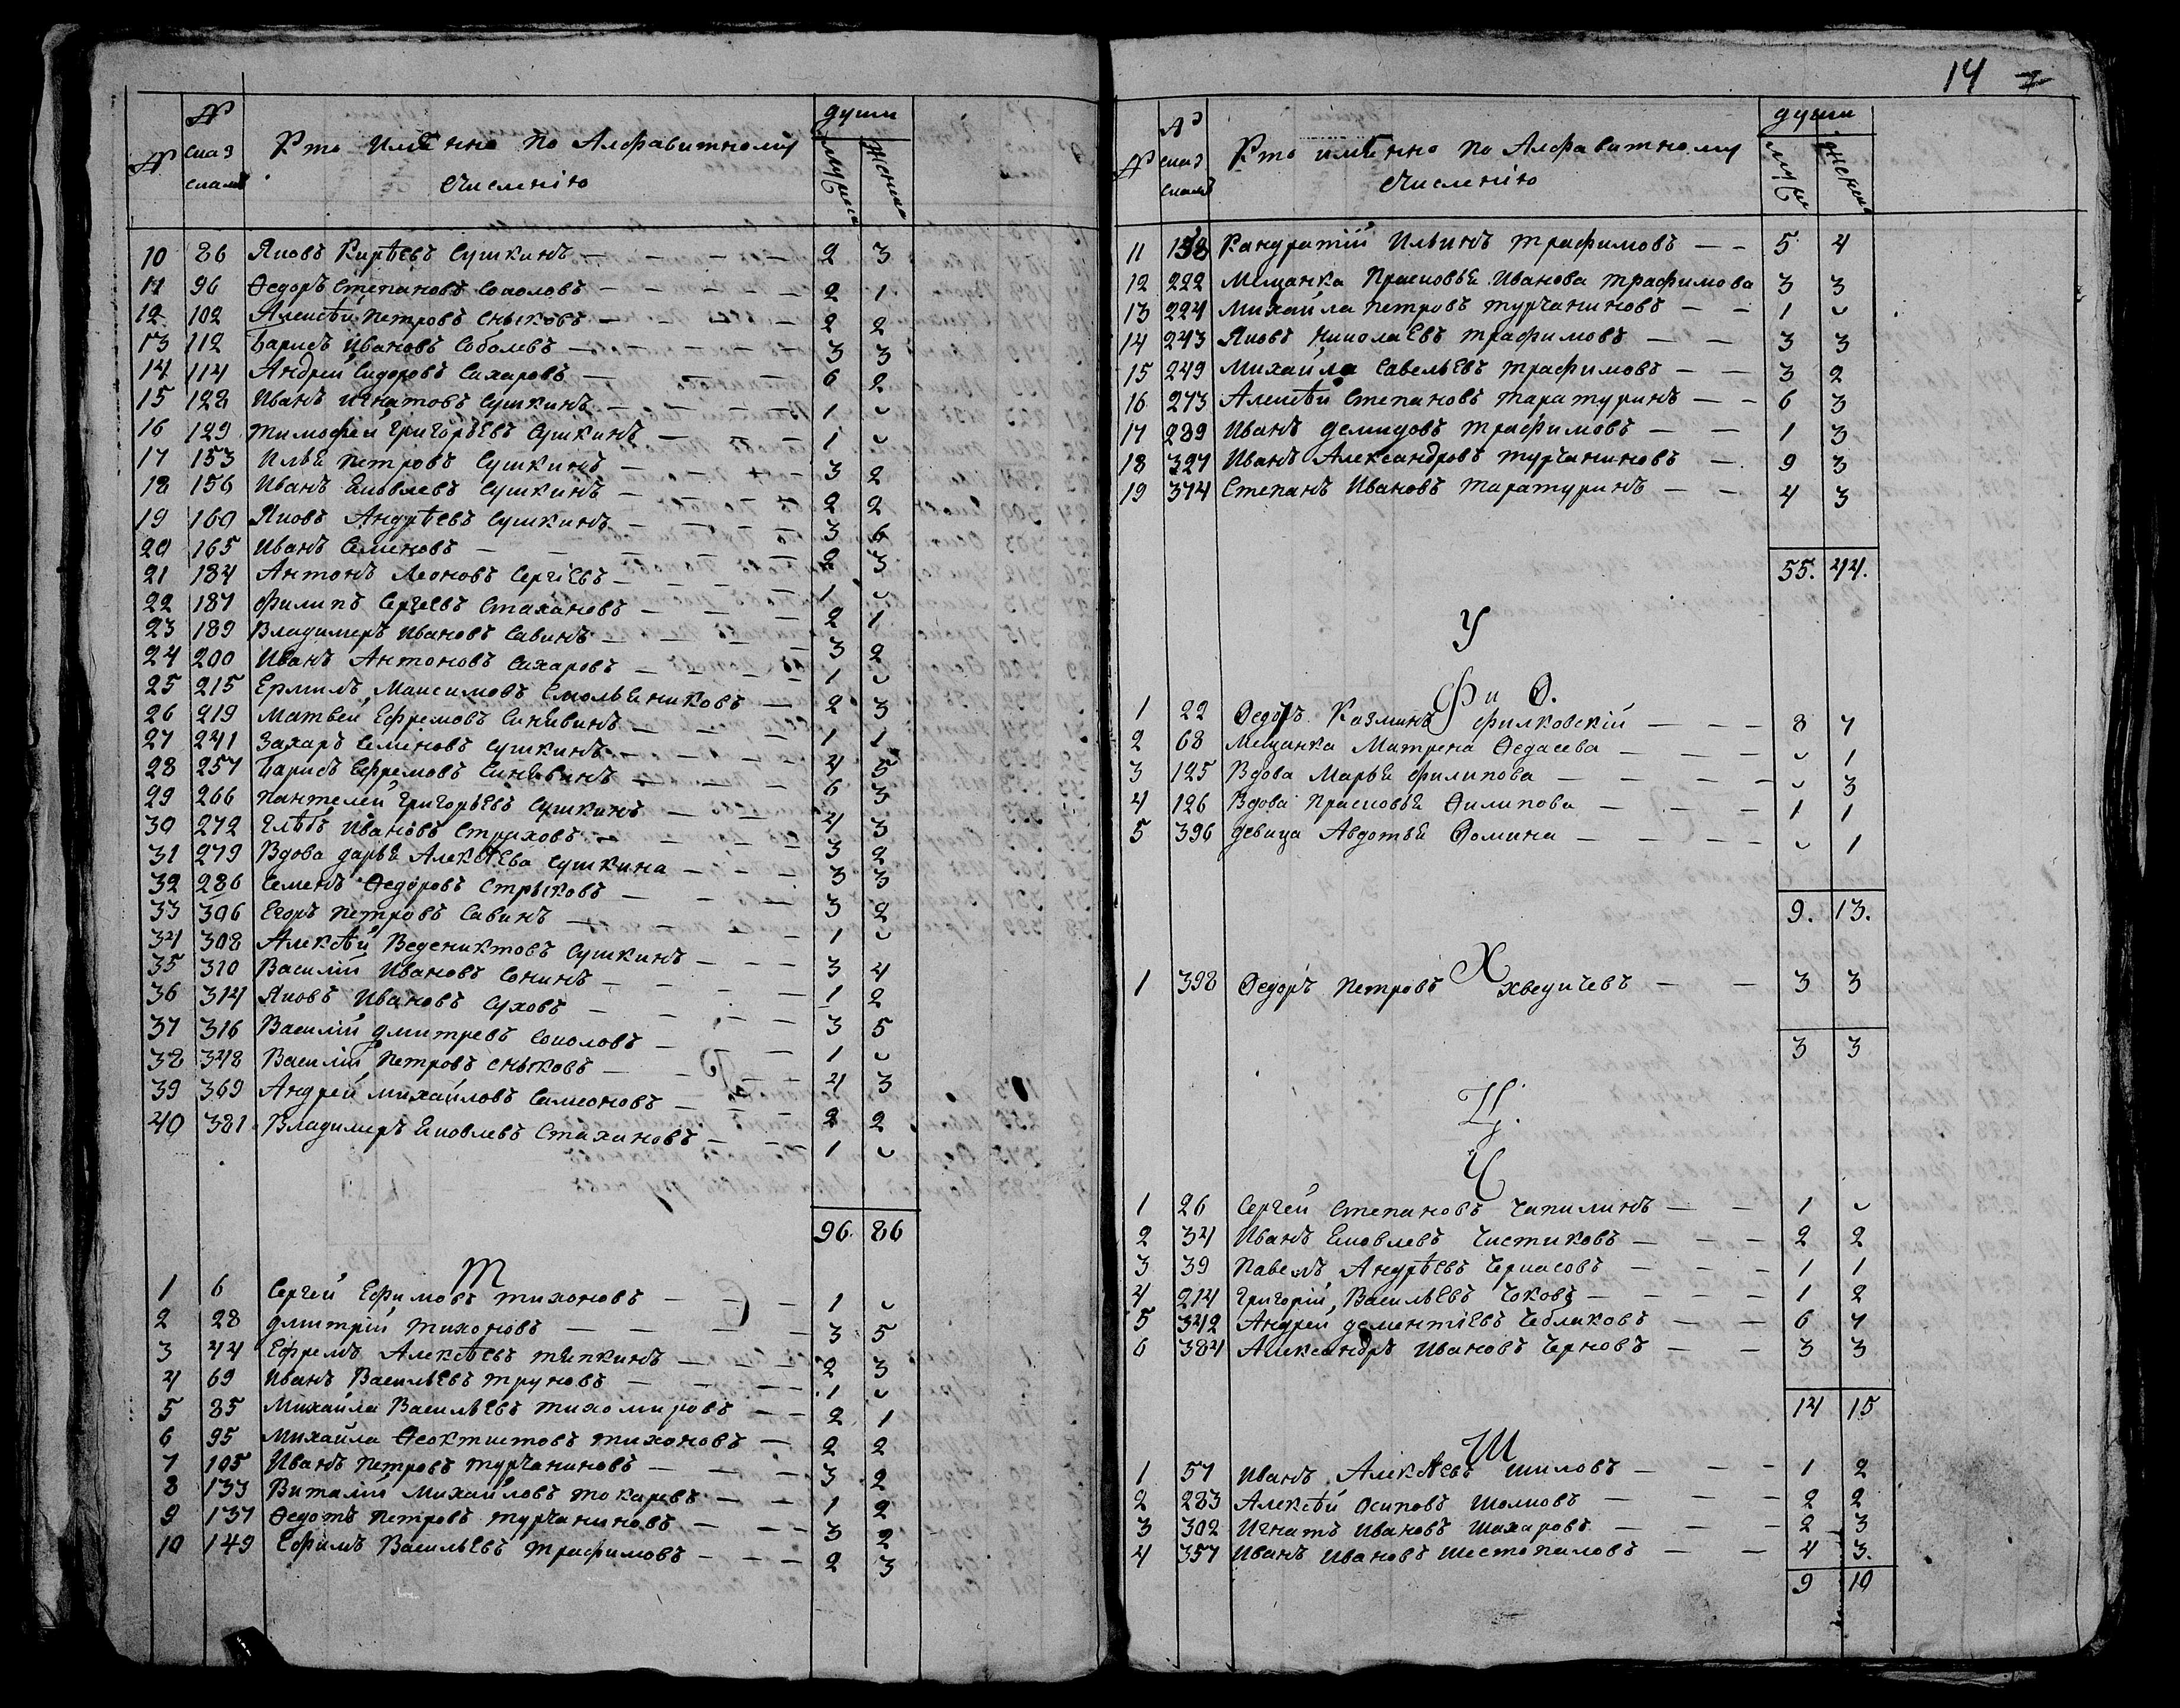 № № сказ скамъ Кто имѣнно по Алфавитному счисленію души мужеска женска
10 86 Яковъ Кирѣевъ Сушкинъ — 2 3
11 96 Ѳедоръ Степановъ Соколовъ — 2 1
12 102 Алексѣй Петровъ Сныковъ — 2 2
13 112 Барисъ Ивановъ Соболевъ — 3 3
14 114 Андрей Сидоровъ Сахаровъ — 6 2
15 128 Иванъ Игнатовъ Сушкинъ — 1 ᴗ
16 129 Тимофей Григорьевъ Сушкинъ — 1 ᴗ
17 153 Илья Петровъ Сушкинъ — 3 2
18 156 Иванъ Яковлевъ Сушкинъ — 2 2
19 160 Яковъ Андрѣевъ Сушкинъ — 3 6
20 165 Иванъ Семеновъ — 2 3
21 184 Антонъ Леоновъ Сергіевъ — 1 ᴗ
22 187 Филипъ Сергеевъ Стахановъ — 2 1
23 189 Владимеръ Ивановъ Савинъ — 3 2
24 200 Иванъ Антоновъ Сахаровъ — 1 ᴗ
25 215 Ермилъ Максимовъ Смольяниковъ — 2 3
26 219 Матвей Ефремовъ Синявинъ — 1 1
27 241 Захаръ Семеновъ Сушкинъ — 4 5
28 257 Барисъ Ефремовъ Синявинъ — 6 3
29 266 Пантелей Григорьевъ Сушкинъ — 4 3
30 272 Глѣбъ Ивановъ Страховъ — 3 2
31 279 Вдова Дарья Алексѣева Сушкина — 3 3
32 286 Семенъ Ѳедоровъ Стрыковъ — 3 2
33 306 Егоръ Петровъ Савинъ — 1 ᴗ
34 308 Алексѣй Ведениктовъ Сушкинъ — 3 4
35 310 Василій Ивановъ Сонинъ — 1 2
36 314 Яковъ Ивановъ Суховъ — 3 5
37 316 Василій Дмитревъ Соколовъ — 1 ᴗ
38 348 Василій Петровъ Сныковъ — 4 3
39 369 Андрей Михайловъ Самсоновъ — 2 2
40 381 Владимеръ Яковлевъ Стахановъ — 1 ᴗ
96 86
Т
1 6 Сергей Ефимовъ Тихоновъ — 1 ᴗ
2 28 Дмитрій Тихоновъ — 3 5
3 44 Ефремъ Алексѣевъ Тяпкинъ — 2 3
4 69 Иванъ Васильевъ Труновъ — 1 ᴗ
5 85 Михайла Васильевъ Тихомировъ — 2 1
6 95 Михайла Ѳеоктистовъ Тихоновъ — 2 2
7 105 Иванъ Петровъ Турчаниновъ — 3 2
8 133 Виталій Михайловъ Токаревъ — 1 2
9 137 Ѳедотъ Петровъ Турчаниновъ — 3 2
10 149 Ефимъ Васильевъ Трафимовъ — 2 3
14
№ № сказ скамъ Кто имѣнно по Алфавитному счисленію души муж женска
11 158 Кандратій Ильинъ Трафимовъ — 5 4
12 222 Мещанка Прасковья Иванова Трафимова 3 3
13 224 Михайла Петровъ Турчаниновъ — 1 ᴗ
14 243 Яковъ Николаевъ Трафимовъ — 3 3
15 249 Михайла Савельевъ Трафимовъ — 3 2
16 273 Алексѣй Степановъ Таратуринъ — 6 3
17 289 Иванъ Демидовъ Трафимовъ — 1 3
18 327 Иванъ Александровъ Турчаниновъ — 9 3
19 374 Степанъ Ивановъ Таратуринъ — 4 3
55. 44.
У
Ф и Ѳ.
1 22 Ѳедоръ Казминъ Филковскій — 8 7
2 68 Мещанка Матрена Ѳедасева — ᴗ 1
3 125 Вдова Марья Филипова — ᴗ 3
4 126 Вдова Прасковья Ѳилипова — 1 1
5 396 Девица Авдотья Ѳомина — ᴗ 1
9. 13.
Х
1 398 Ѳедоръ Петровъ Хведичевъ — 3 3
3 3
Ц.
Ч
1 26 Сергей Степановъ Чапилинъ — 1 ᴗ
2 34 Иванъ Яковлевъ Чистиковъ — 2 2
3 39 Павелъ Андрѣевъ Черкасовъ — 1 1
4 214 Григорій Васильевъ Чоковъ — 1 2
5 342 Андрей Дементіевъ Чебляковъ — 6 7
6 384 Александръ Ивановъ Черновъ — 3 3
14 15
Ш
1 57 Иванъ Алексѣевъ Шиловъ — 1 2
2 283 Алексѣй Осиповъ Шолковъ — 2 2
3 302 Игнатъ Ивановъ Шахаровъ — 2 3
4 357 Иванъ Ивановъ Шестопаловъ — 4 3.
9 10